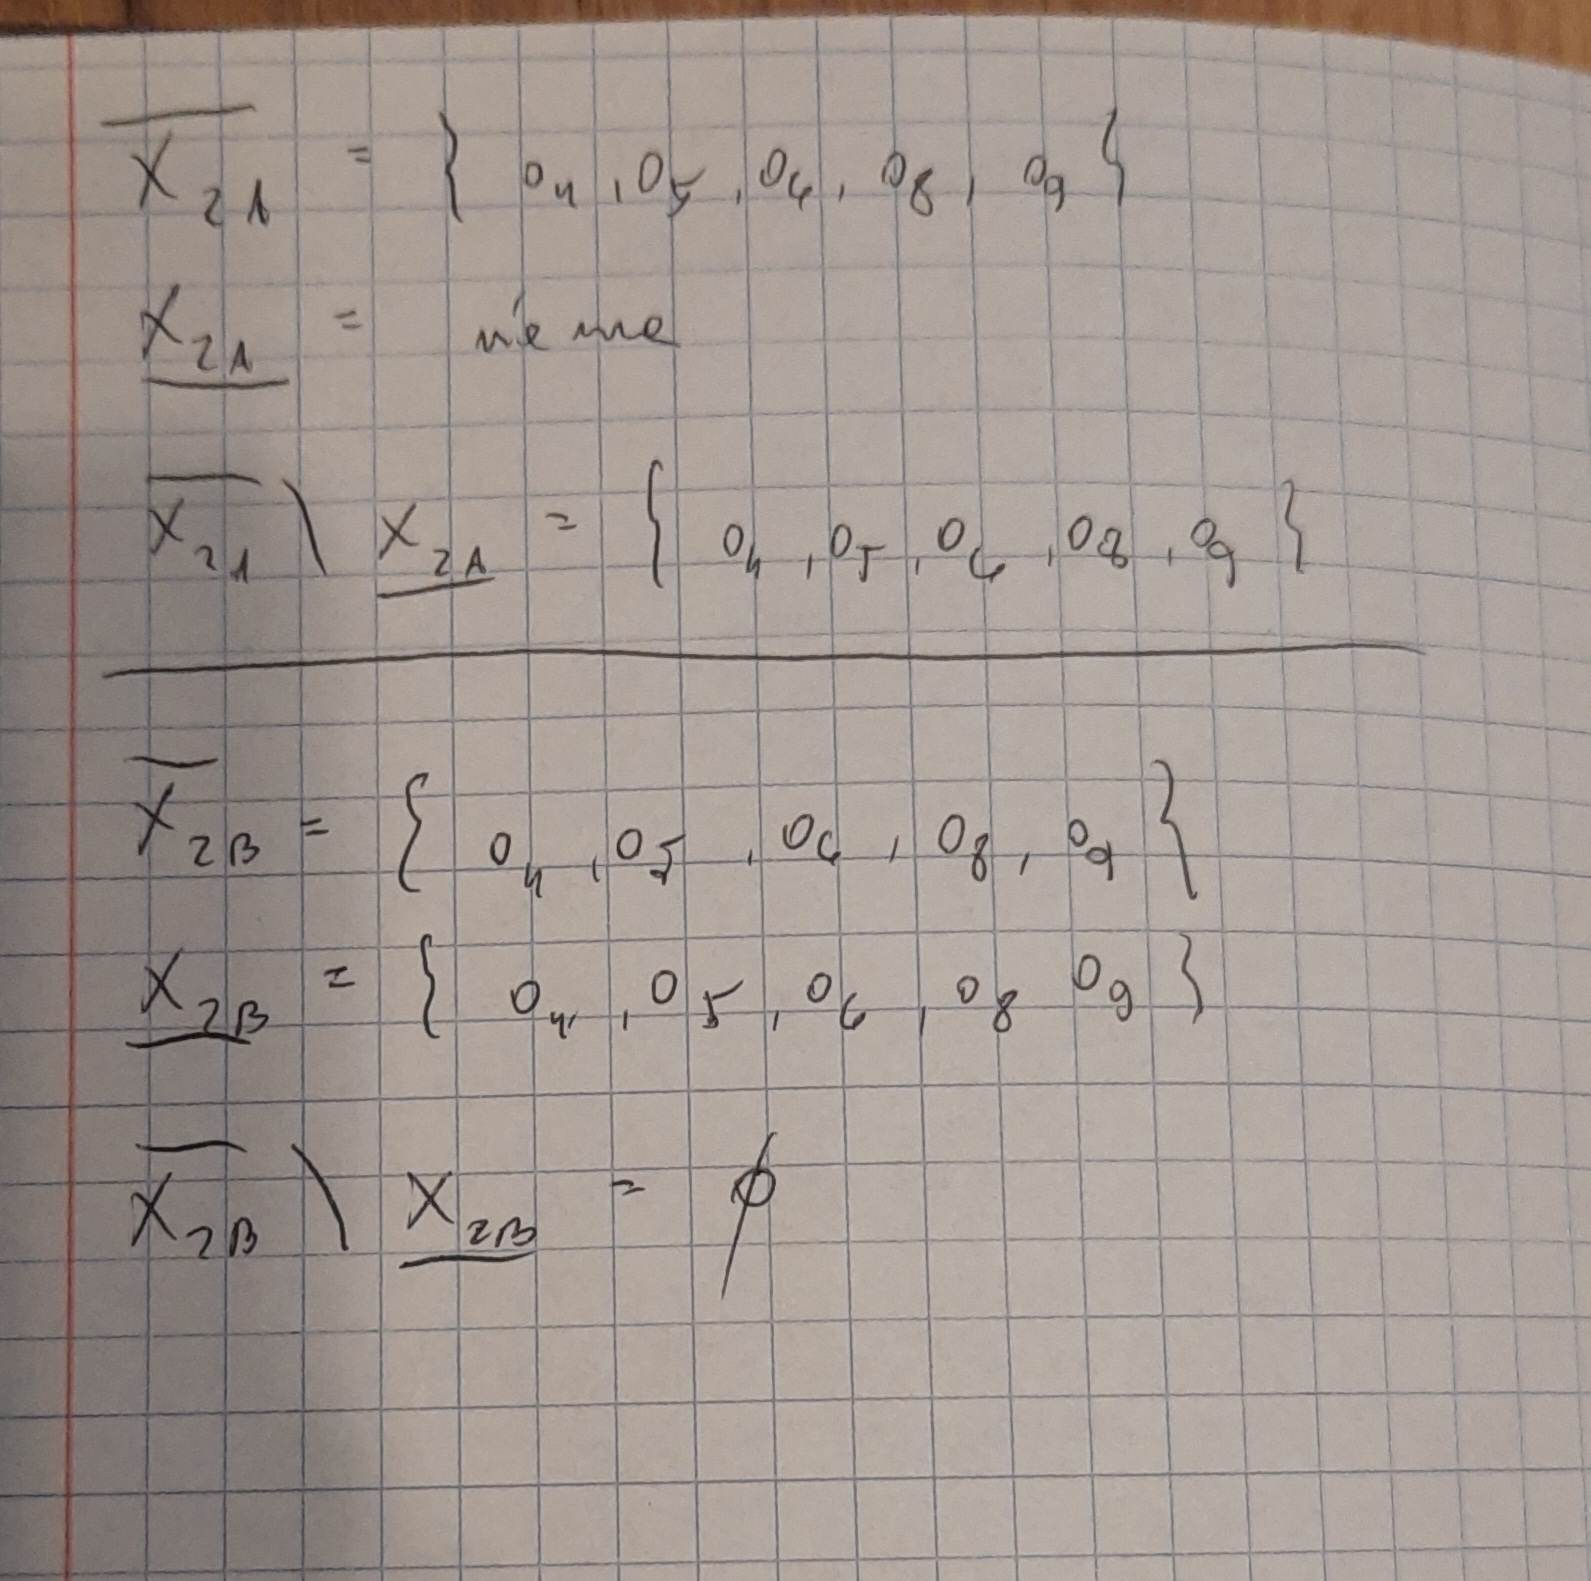 X̅₂A = { o₄, o₅, o₆, o₈, o₉ }
X̲₂A = nie ma
X̅₂A \ X̲₂A = { o₄, o₅, o₆, o₈, o₉ }
X̅₂B = { o₄, o₅, o₆, o₈, o₉ }
X̲₂B = { o₄, o₅, o₆, o₈ o₉ }
X̅₂B \ X̲₂B = ∅